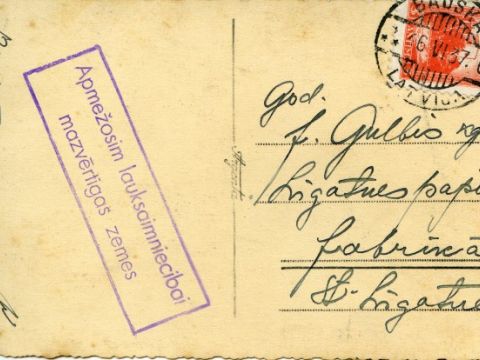 Apmežosim lauksaimniecībai
mazvērtīgas zemes
BAUSKA
6 VI 37
LATVIJA
God.
J. Gulbis kg
Līgatnes papī
fabrikā
St. Līgatne